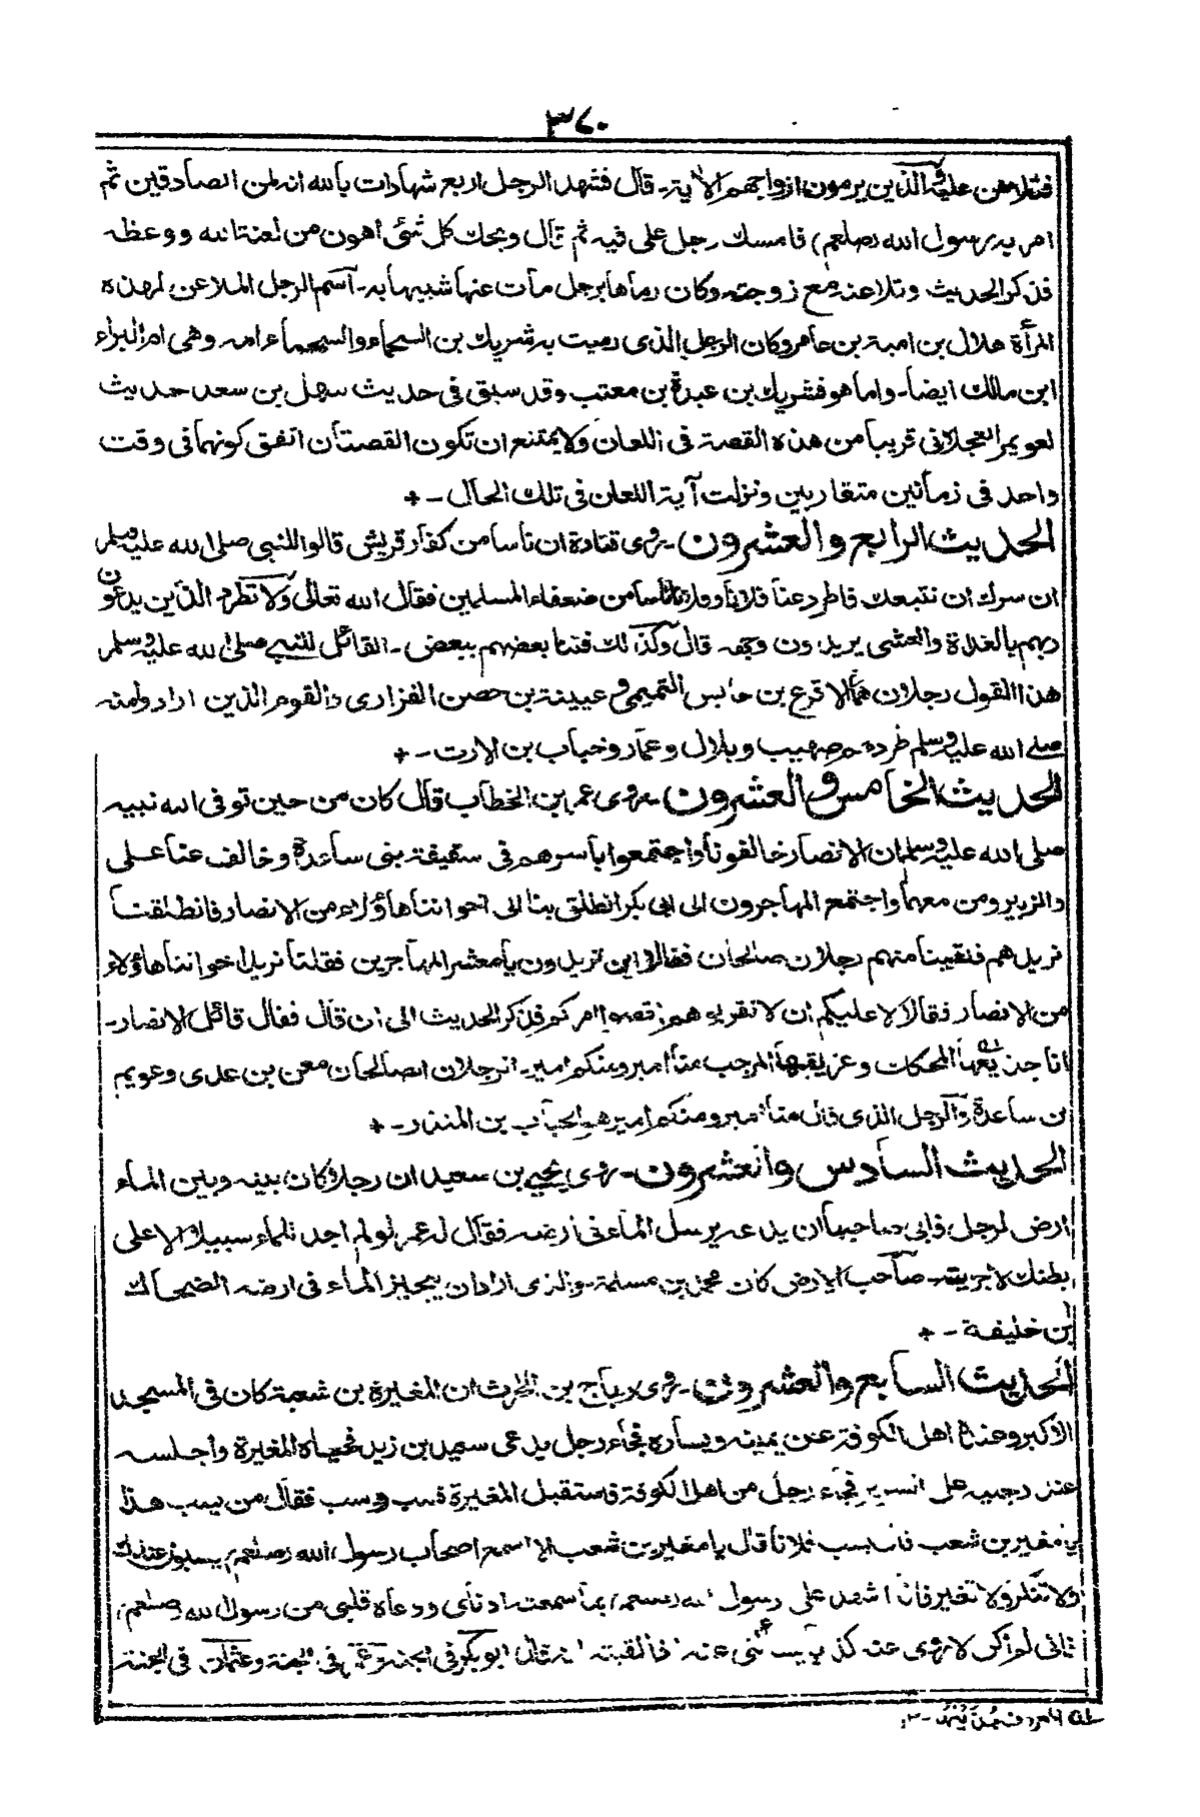 ٣٧٠
فتلاهن عليه والذين يرمون ازواجهم الاية ـ قال فشهد الرجل اربع شهادات بالله انه لمن الصادقين ثم
امر به رسول الله (صلعم) فامسك رجل على فيه ثم قال ويحك كل شئ اهون من لعنة الله ووعظه
فذكر الحديث وتلاعنه مع زوجته وكان رماها برجل مات عنها شبيها به ـ اسم الرجل الملاعن لهذه
المرأة هلال بن امية بن عامر وكان الرجل الذى رميت به شريك بن السحماء والسحماء امه وهى ام البراء
ابن مالك ايضا ـ واما هو فشريك بن عبدة بن معتب وقد سبق فى حديث سهل بن سعد حديث
لعويمر العجلانى قريبا من هذه القصة فى اللعان ولا يمتنع ان تكون القصتان اتفق كونهما فى وقت
واحد فى زمانين متقاربين ونزلت آية اللعان فى تلك الحال ـ +
الحديث الرابع والعشرون ـ روى قتادة ان ناسا من كفار قريش قالوا للنبى صلى الله عليه وسلم
ان سرك ان نتبعك فاطرد عنا فلانا وفلانا ناسا من ضعفاء المسلمين فقال الله تعالى ولا تطرد الذين يدعون
ربهم بالغداة والعشى يريدون وجهه قال وكذلك فتنا بعضهم ببعض ـ القائل للنبى صلى الله عليه وسلم
هذا القول رجلان هما الاقرع بن حابس التميمى وعيينة بن حصن الفزارى والقوم الذين ارادوا منه
صلى الله عليه وسلم طرده هم صهيب وبلال وعمار وخباب بن الارت ـ +
الحديث الخامس والعشرون ـ روى عمر بن الخطاب قال كان من حين توفى الله نبيه
صلى الله عليه وسلم ان الانصار خالفونا واجتمعوا باسرهم فى سقيفة بنى ساعدة وخالف عنا على
والزبير ومن معهما واجتمع المهاجرون الى ابى بكر انطلق بنا الى اخواننا هاؤلاء من الانصار فانطلقنا
نريدهم فلقينا منهم رجلان صالحان فقالا اين تريدون يا معشر المهاجرين فقلنا نريد اخواننا هاؤلاء
من الانصار فقالا لا عليكم ان لا تقربوهم اقضوا امركم فذكر الحديث الى ان قال فقال قائل الانصار ـ
انا جذيلها المحكك وعذيقها المرجب منا امير ومنكم امير ـ الرجلان الصالحان معن بن عدى وعويم
بن ساعدة والرجل الذى قال منا امير ومنكم امير هو الحباب بن المنذر ـ +
الحديث السادس والعشرون ـ روى يحيى بن سعيد ان رجلا كان بينه وبين الماء
ارض لرجل فابى صاحبها ان يدعه يرسل الماء فى ارضه فقال له عمر لو لم اجد للماء سبيلا الا على
بطنك لاجريته ـ صاحب الارض كان محمد بن مسلمة والذى اراد ان يجيز الماء فى ارضه الضحاك
ابن خليفة ـ +
الحديث السابع والعشرون ـ روى رياح بن الحارث ان المغيرة بن شعبة كان فى المسجد
الاكبر وعنده اهل الكوفة عن يمينه ويساره فجاء رجل يدعى سعيد بن زيد فحياه المغيرة واجلسه
عند رجليه على السرير فجاء رجل من اهل الكوفة فاستقبل المغيرة فسب وسب فقال من يسب هذا
يا مغير بن شعب قال يسب فلانا قال يا مغير بن شعب الا اسمع اصحاب رسول الله (صلعم) يسبون عندك
ولا تنكر ولا تغير فانا اشهد على رسول الله (صلعم) بما سمعت اذناى ووعاه قلبى من رسول الله (صلعم)
فانى لم اكن لاروى عنه كذبا يسئلنى عنه اذا لقيته انه قال ابو بكر فى الجنة وعمر فى الجنة وعثمان فى الجنة